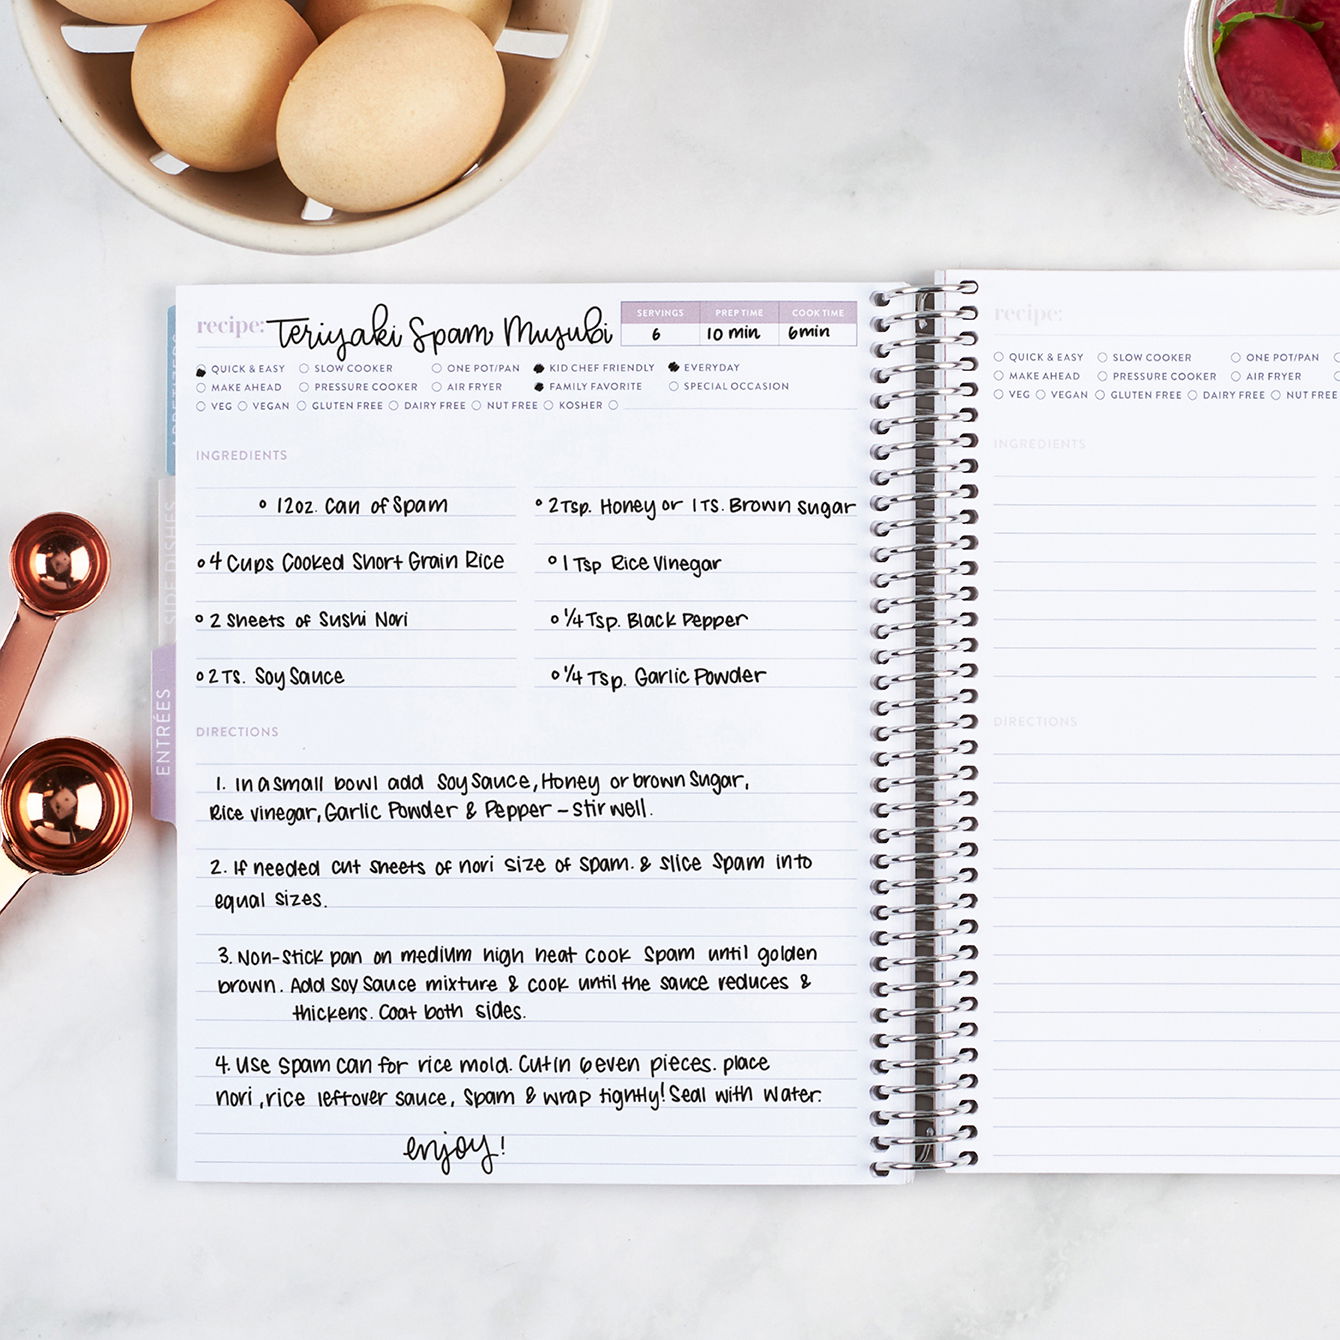 recipe: Teriyaki Spam Musubi
SERVINGS PREP TIME COOK TIME
6 10 min 6min
QUICK & EASY SLOW COOKER ONE POT/PAN KID CHEF FRIENDLY EVERYDAY
MAKE AHEAD PRESSURE COOKER AIR FRYER FAMILY FAVORITE SPECIAL OCCASION
VEG VEGAN GLUTEN FREE DAIRY FREE NUT FREE KOSHER
INGREDIENTS
12oz. Can of Spam
4 Cups Cooked Short Grain Rice
2 Sheets of Sushi Nori
2 Ts. Soy Sauce
2 Tsp. Honey or 1 Ts. Brown sugar
1 Tsp Rice Vinegar
1/4 Tsp. Black Pepper
1/4 Tsp. Garlic Powder
DIRECTIONS
1. In a small bowl add Soy Sauce, Honey or brown Sugar,
Rice vinegar, Garlic Powder & Pepper – stir well.
2. If needed cut sheets of nori size of spam. & slice Spam into
equal sizes.
3. Non-stick pan on medium high heat cook Spam until golden
brown. Add Soy Sauce mixture & cook until the sauce reduces &
thickens. Coat both sides.
4. Use Spam can for rice mold. Cut in 6 even pieces. place
nori, rice leftover sauce, Spam & wrap tightly! Seal with water.
enjoy!
SIDE DISHES
ENTRÉES
recipe:
QUICK & EASY SLOW COOKER ONE POT/PAN
MAKE AHEAD PRESSURE COOKER AIR FRYER
VEG VEGAN GLUTEN FREE DAIRY FREE NUT FREE
INGREDIENTS
DIRECTIONS